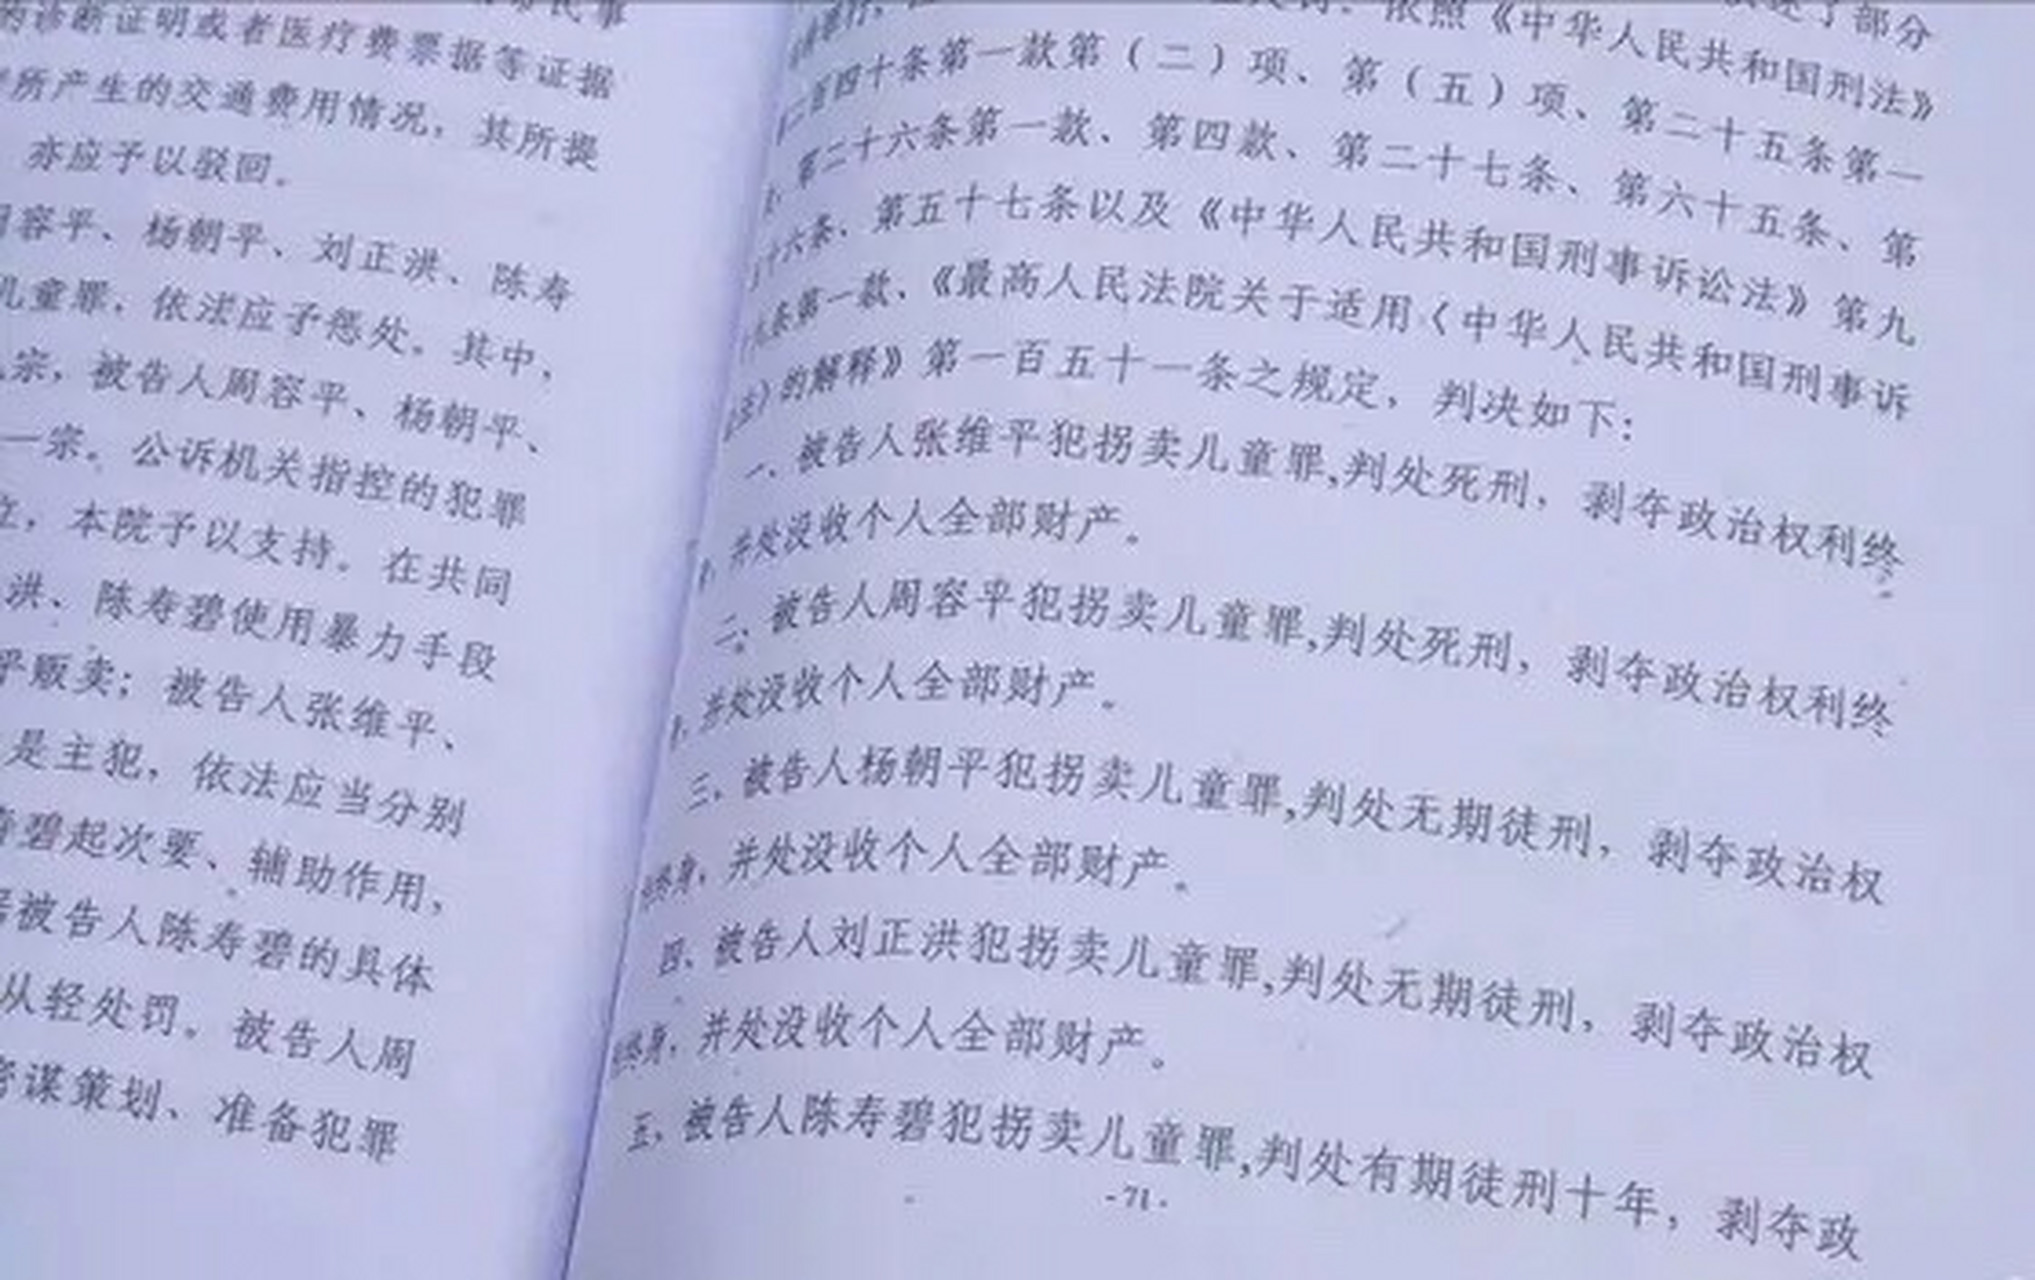 的诊断证明或者医疗费票据等证据
所产生的交通费用情况，其所提
亦应予以驳回。
容平、杨朝平、刘正洪、陈寿
儿童罪，依法应予惩处。其中，
宗，被告人周容平、杨朝平、
一宗。公诉机关指控的犯罪
立，本院予以支持。在共同
洪、陈寿碧使用暴力手段
贩卖；被告人张维平、
是主犯，依法应当分别
碧起次要、辅助作用，
被告人陈寿碧的具体
从轻处罚。被告人周
谋策划、准备犯罪
部分
依照《中华人民共和国刑法》
百四十条第一款第（二）项、第（五）项、第二十五条第一
第二十六条第一款、第四款、第二十七条、第六十五条、第
十六条、第五十七条以及《中华人民共和国刑事诉讼法》第九
条第一款、《最高人民法院关于适用〈中华人民共和国刑事诉
法〉的解释》第一百五十一条之规定，判决如下：
一、被告人张维平犯拐卖儿童罪,判处死刑，剥夺政治权利终
并处没收个人全部财产。
二、被告人周容平犯拐卖儿童罪,判处死刑，剥夺政治权利终
并处没收个人全部财产。
三、被告人杨朝平犯拐卖儿童罪,判处无期徒刑，剥夺政治权
终身，并处没收个人全部财产。
四、被告人刘正洪犯拐卖儿童罪,判处无期徒刑，剥夺政治权
终身，并处没收个人全部财产。
五、被告人陈寿碧犯拐卖儿童罪,判处有期徒刑十年，剥夺政
-71-